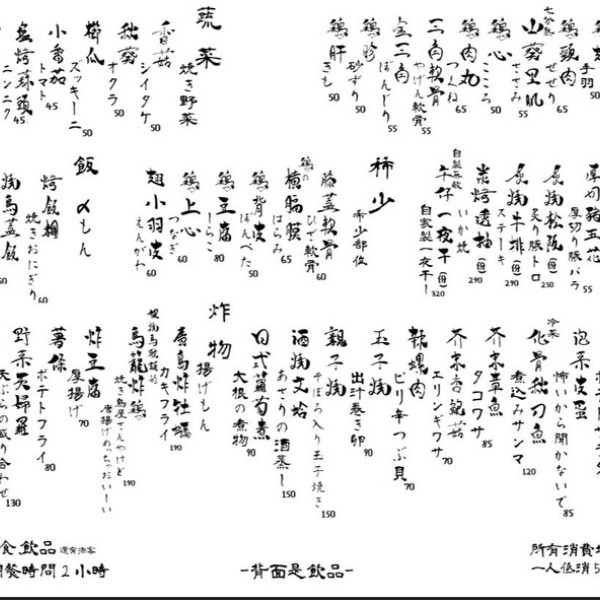 手羽 50
雞頸肉
せせり 65
七分熟
山葵里肌
ささみ 55
雞心
こころ 50
雞肉丸
つくね 65
三角軟骨
やげん軟骨 55
金三角
ぼんじり 55
雞胗
砂ずり 50
雞肝
きも 50
蔬菜
焼き野菜
香菇
シイタケ 50
秋葵
オクラ 50
櫛瓜
ズッキーニ 50
小番茄
トマト 45
塩烤蒜頭 45
ニンニク
厚切豬五花
厚切り豚バラ 55
炙燒松阪(份)
炙り豚トロ 250
炙燒牛排(份)
ステーキ 290
炭烤透抽(份)
いか焼 290
自製無酸
午仔一夜干(份)
自家製一夜干し 320
稀少
稀少部位
膝蓋軟骨
ひざ軟骨 60
雞の
橫膈膜
はらみ 65
雞背皮
ぼんぺた 50
雞豆腐
しらこ 80
雞上心
つなぎ 60
翅小羽皮
えんがわ 60
飯
〆もん
烤飯糰
焼きおにぎり 60
燒鳥蓋飯
泡菜皮蛋
怖いから聞かないで 85
冷菜
化骨秋刀魚
煮込みサンマ 120
芥末章魚
タコワサ 85
芥末杏鮑菇
エリンギワサ 70
辣螺肉
ピリ辛つぶ貝 70
玉子燒
出汁巻き卵 90
親子燒
そぼろ入り玉子焼き 150
酒燒文蛤
あさりの酒蒸し 150
日式蘿蔔煮
大根の煮物 90
炸物
揚げもん
廣島炸牡蠣
カキフライ 190
烏龍炸雞
焼き鳥屋さんやけど
唐揚げめっちゃおいしい 190
炸豆腐
厚揚げ 70
薯條
ポテトフライ 80
野菜天婦羅
天ぷらの盛り合わせ 130
所有消費
一人低消5
-背面是飲品-
食飲品 還有清客
用餐時間2小時